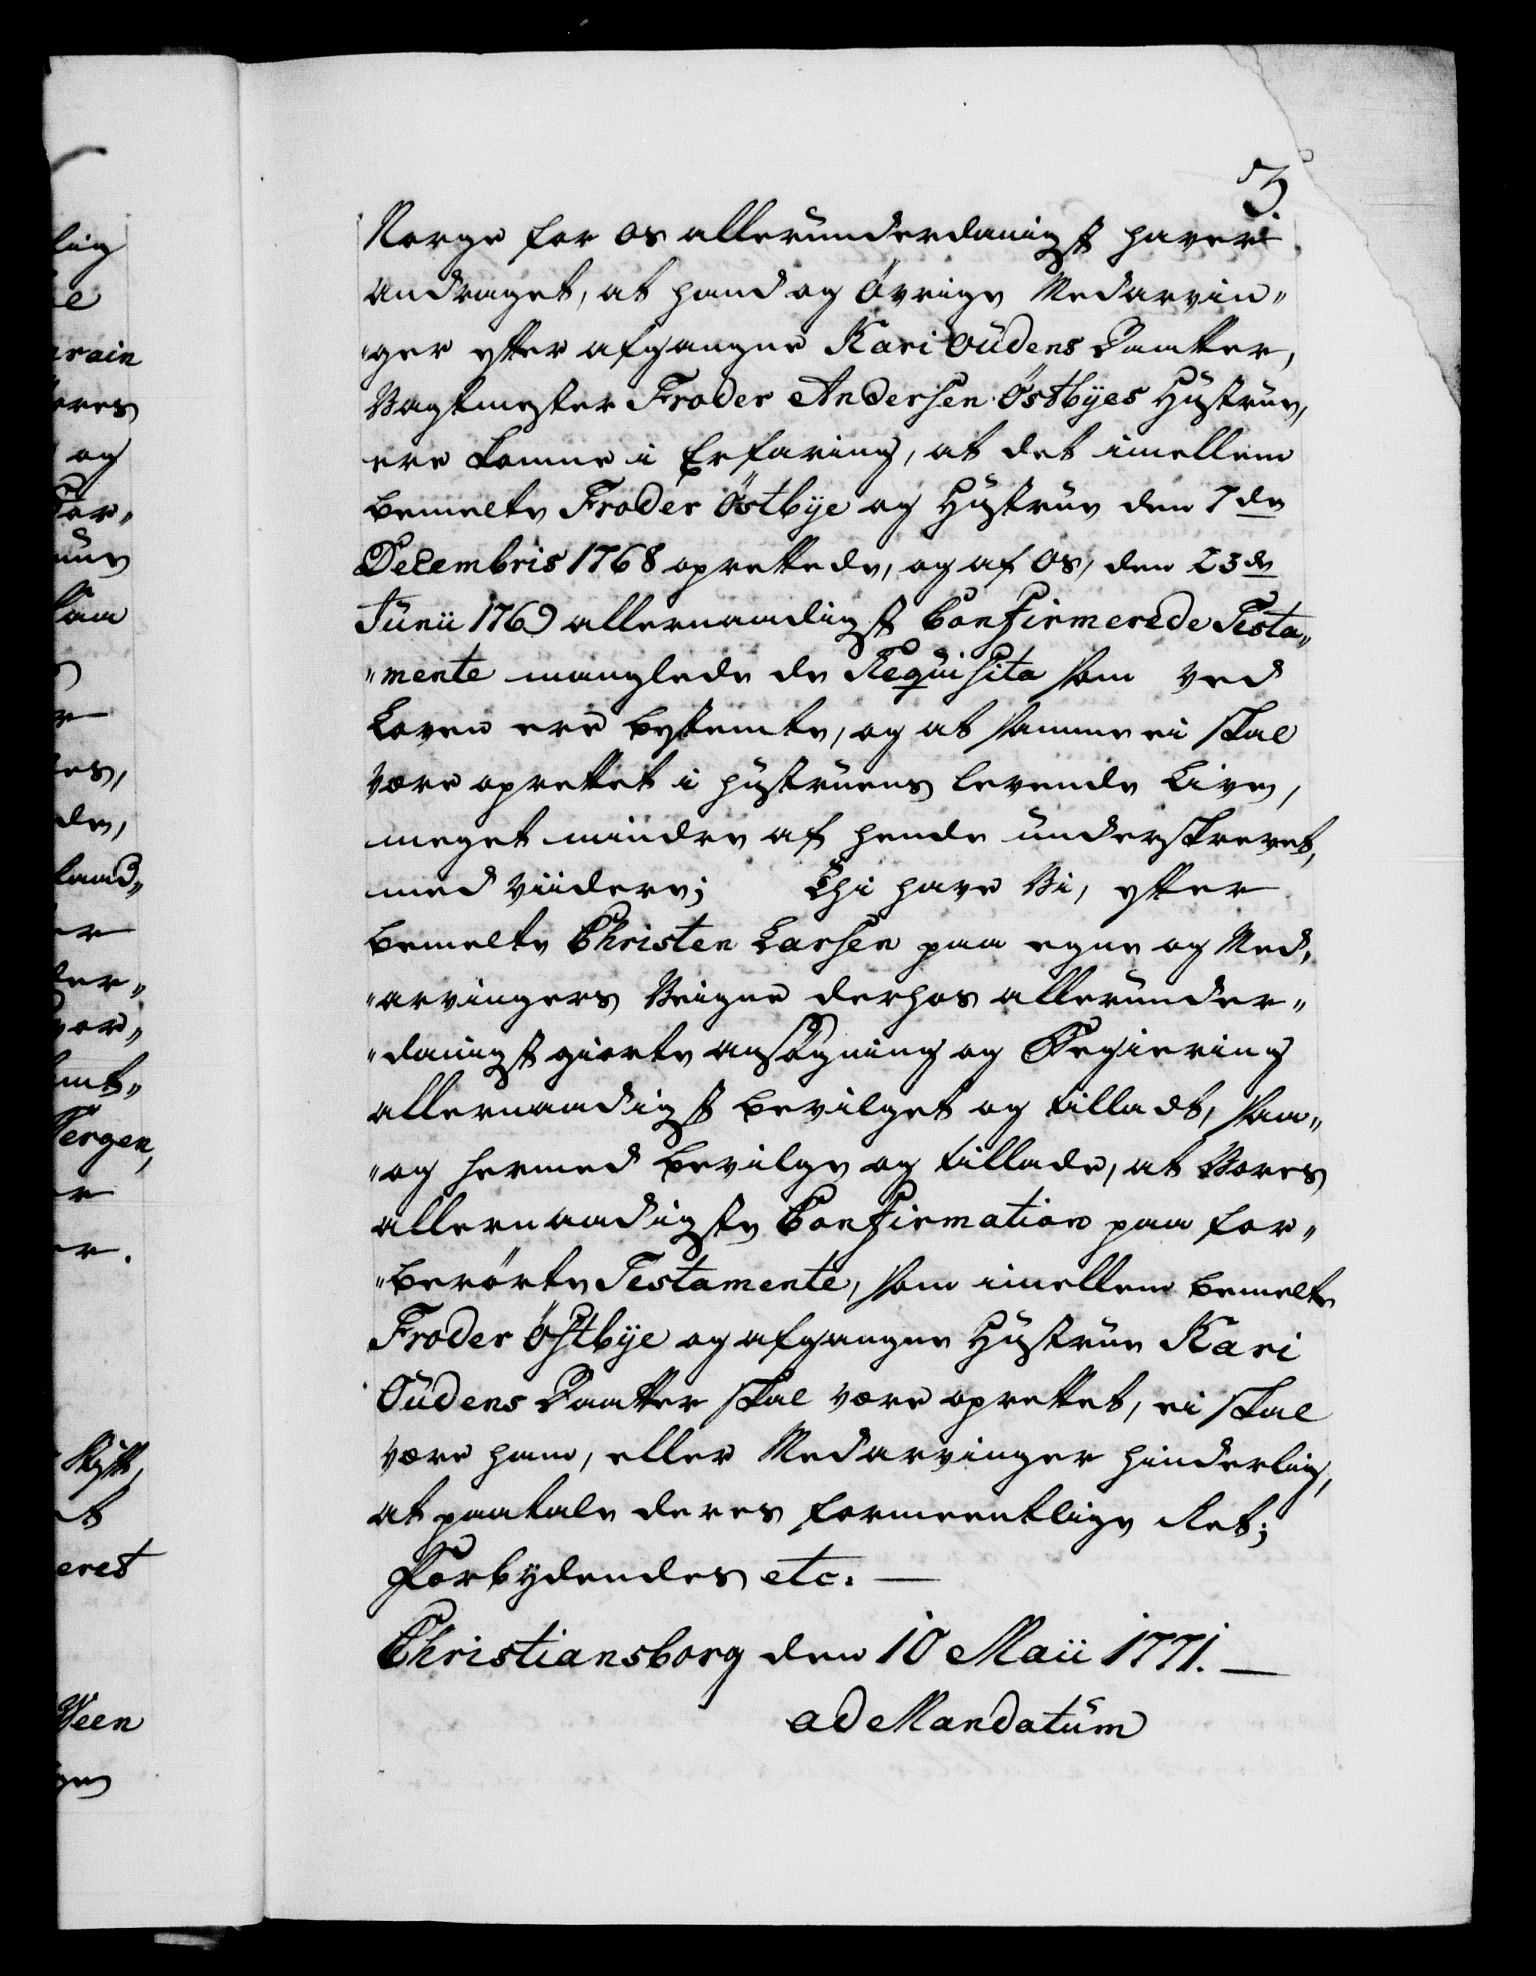 3.
Norge for os allerunderdanigst haver
andraget, at hand og Övrige Medarvin„
„ger efter afgangne Kari Oudens Daatter,
Vagtmester Froder Andersen Östbyes Hustrue,
ere komne i Erfaring, at det imellem
bemelte Froder Östbye og Hustrue den 7de
Decembris 1768 oprettede, og af os, den 23de
Junii 1769 allernaadigst Confirmerede Testa„
„mente manglede de Requisita som ved
Loven ere bestemte, og at samme ei skal
være oprettet i hustruens levende Live,
meget mindre af hende underskrevet,
med viidere; Thi have Vi, efter
bemelte Christen Larsen paa egne og Med„
„arvingers Veigne derhos allerunder„
„danigst giorte ansögning og Begiering
allernaadigst bevilget og tilladt, saa„
„og hermed bevilge og tillade, at Vores
allernaadigste Confirmation paa for„
„berörte Testamente, som imellem bemelte
Froder Östbye og afgangne Hustrue Kari
Oudens Daatter skal være oprettet, ei skal
være ham, eller Medarvinger hinderlig,
at paatale deres formeentlige Ret;
Forbydendes etc. —
Christiansborg den 10 Maii 1771. —
ad Mandatum